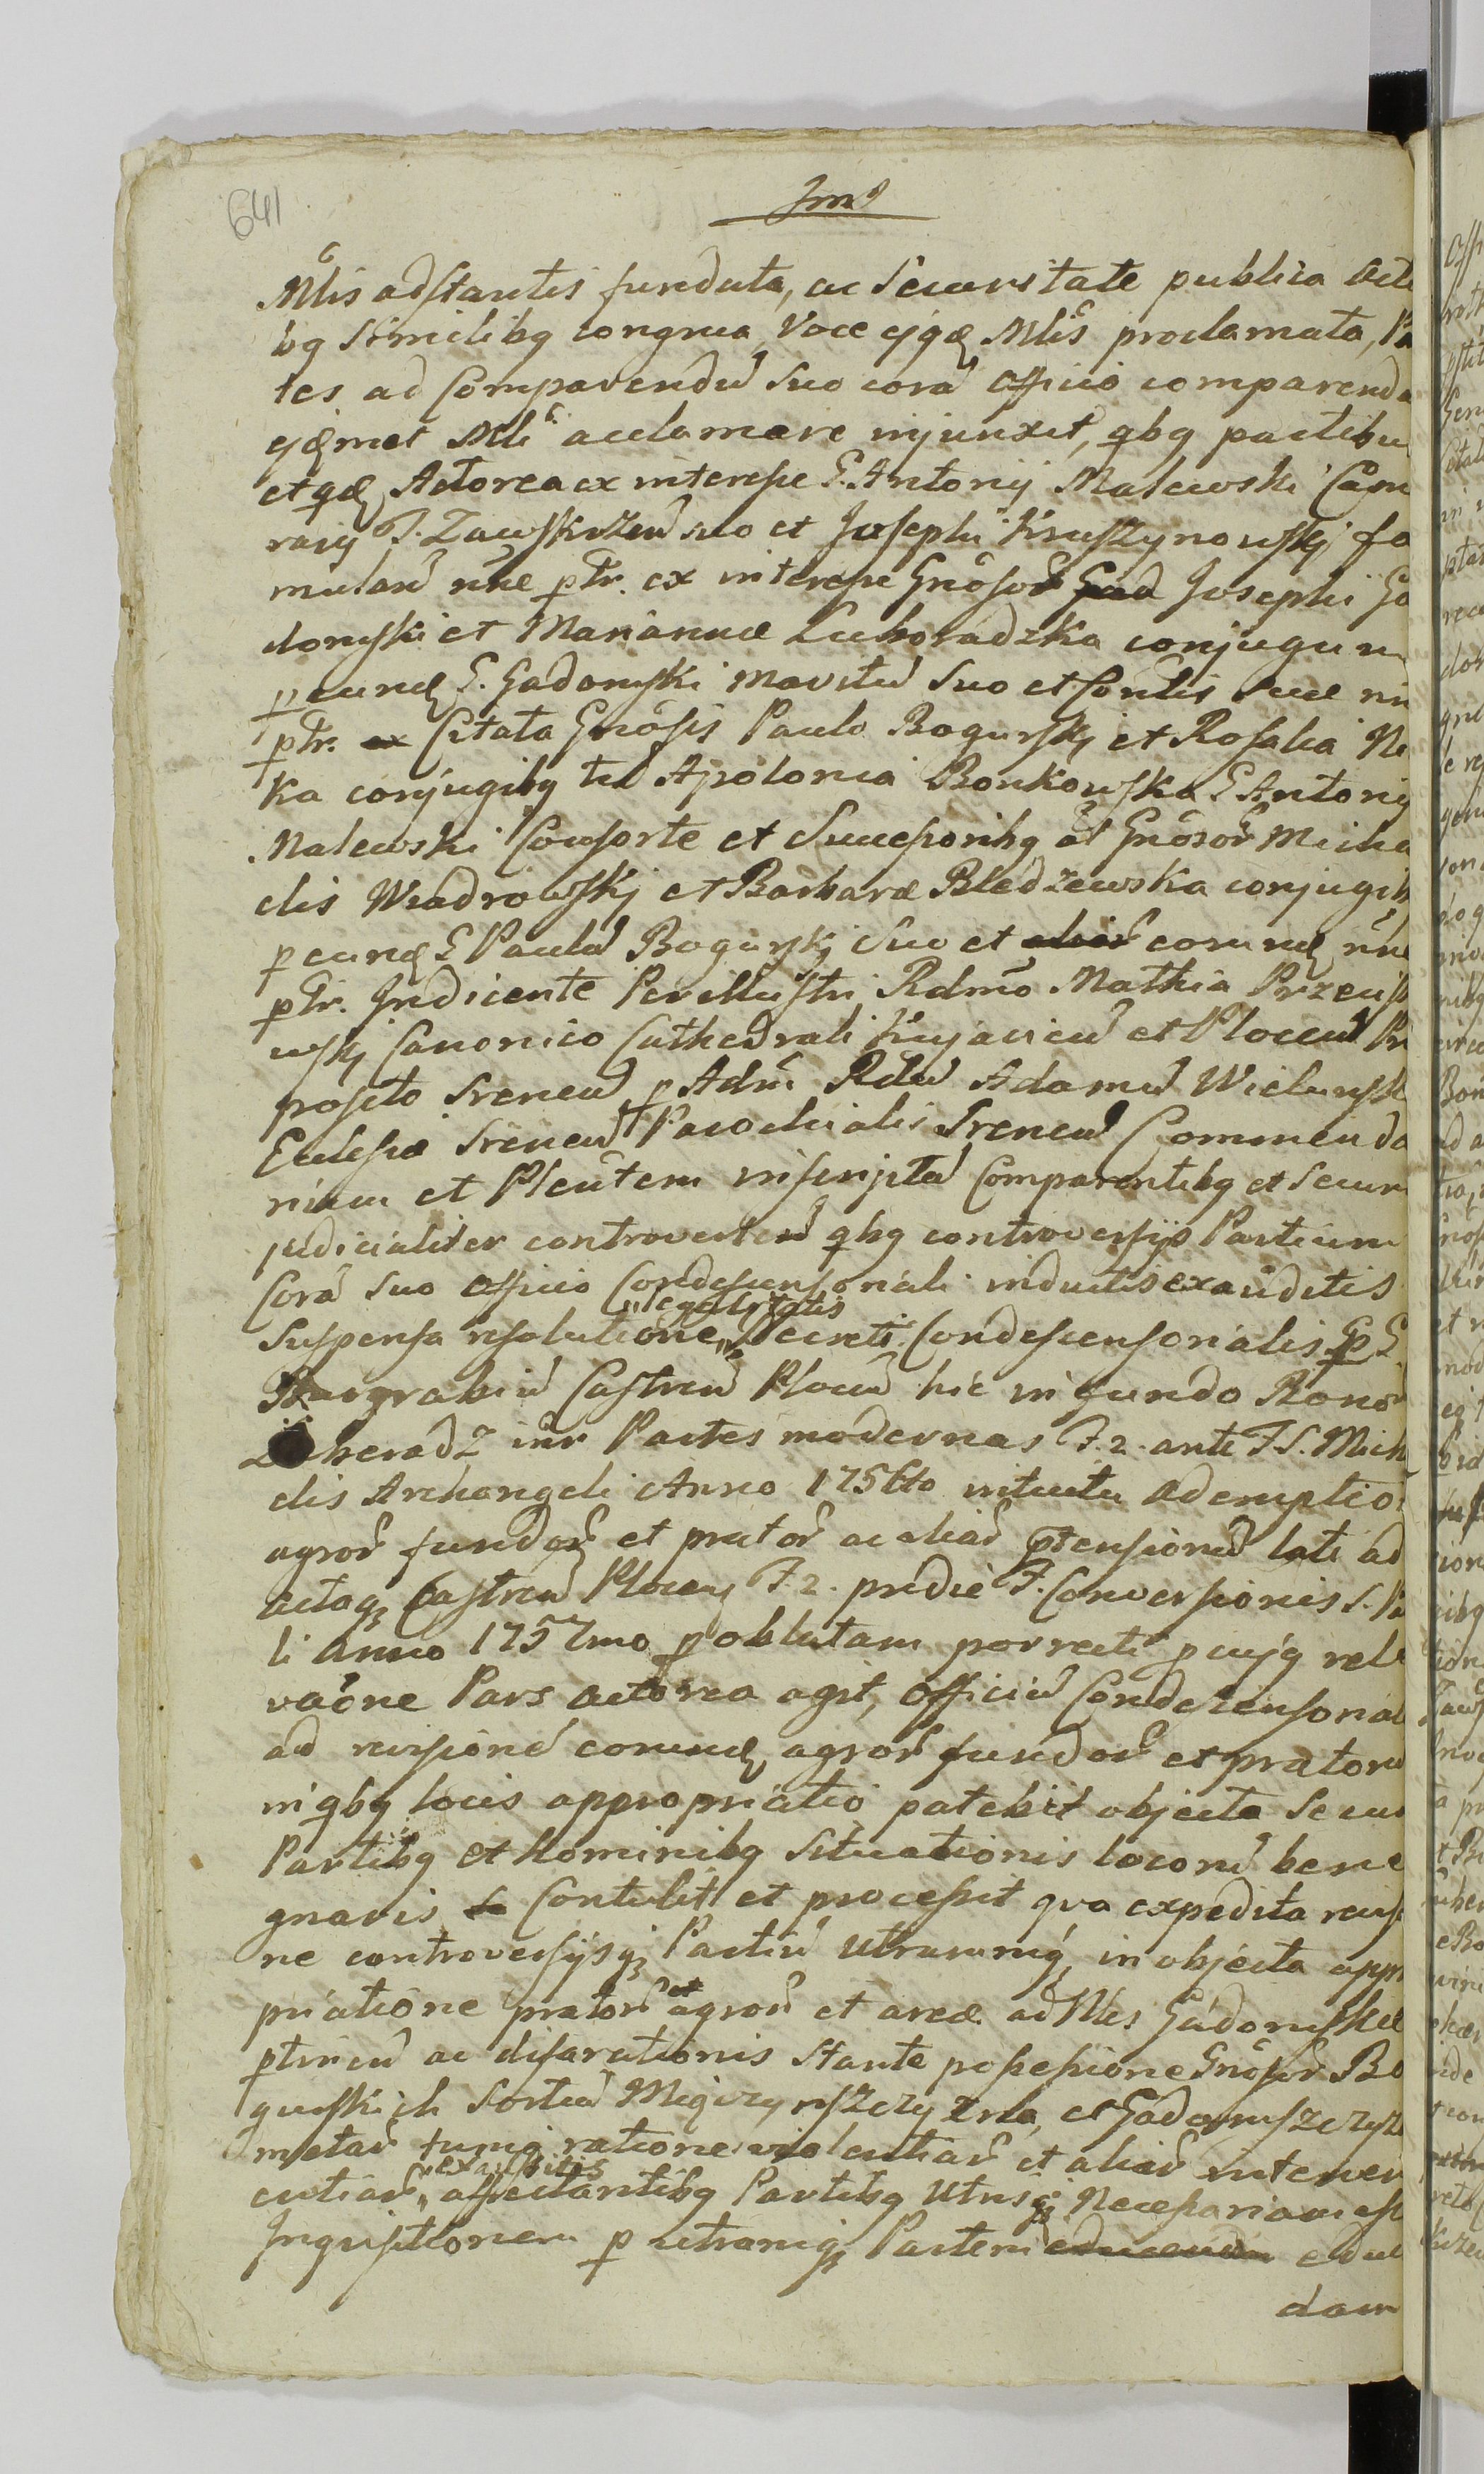 641
Mlis adstantis fundata, ac Securitate publica Acti
bq similibq congrua, Voce ejqd Mlis proclamata, Pa
tes ad Comparendu suo cora Officio comparenda
ejdmet Mli acclamare injunxit, qbq partibu
etqd Actorea ex interesse G. Antonij Malewski Cam
rarij T. Zawskrzen suo et Josephi Kruszynowskj fa
mulari nne ptr. ex interesse Gnosor Josephi Ga
domski et Mariannæ Luberadzka conjugum
p eund G. Gadomski Maritu suo et Contlis suæ
ptr. Citata Gnosis Paulo Bogurskj et Rosalia
ka conjugibq tu Apolonia Bonkowska G Antonij
Malewski Consorte et Successoribq ol Gnosor Micha
elis Wiadrowskj et Barbaræ Bledzewska conjugib
p eund G Paulu Bogurskj suo et aliar eorund nne
ptr. Judicente Perillustri Rdmo Mathia Przeus
wskj Canonico Cathedrali Kujavien et Plocen Pr
posito Srenen p Adm Rdu Adamu Wielunsk
Ecclesiæ Srenen Parochialis Srenen Commenda
rium et Plentem inscriptu Comparentibq et Secum
judicialiter controverten qbq controversijs Partium
Cora suo Officio Condescensoriali inductis exauditis
legalitatis
Suspensa resolutione Decreti Condescensorialis p G.
Burgrabiu Castren Plocen hic in fundo Bonor
Luberadz intr Partes modernas F. 2. ante F. S. Micha
elis Archangeli Anno 1756to intuitu Ademptio
agror fundor et prator ac aliar ptensionu lati ad
actaq Castren Plocen F. 2. pridie F. Conversionis S. Pa
li Anno 1757mo p oblatam porrecti p cujq rele
vaone Pars actorea agit, Officiu Condescensorial
ad revisione eorund agror fundor et pratoru
in qbq locis appropriatio patebit objecta secum
Partibq et Hominibq Situationis locoru bene
gnaris Contulit et processit qva expedita revisio
ne controversijsq Partiu utrarumq in objecta appro
priatione prator et agror et areæ ad Nles Gadomskie
ptinen ac disparationis stante possessione Gnosor Bo
gurskich sortiu Miqczynszczyzna, et Gadomszczyzn
metar tumq ratione violentiar et aliar inconven
exauditis
entiar, affectantibq Partibq Utrisq Necessariam esse
Inqvisitionem p utramq Partem educendam educ
dam